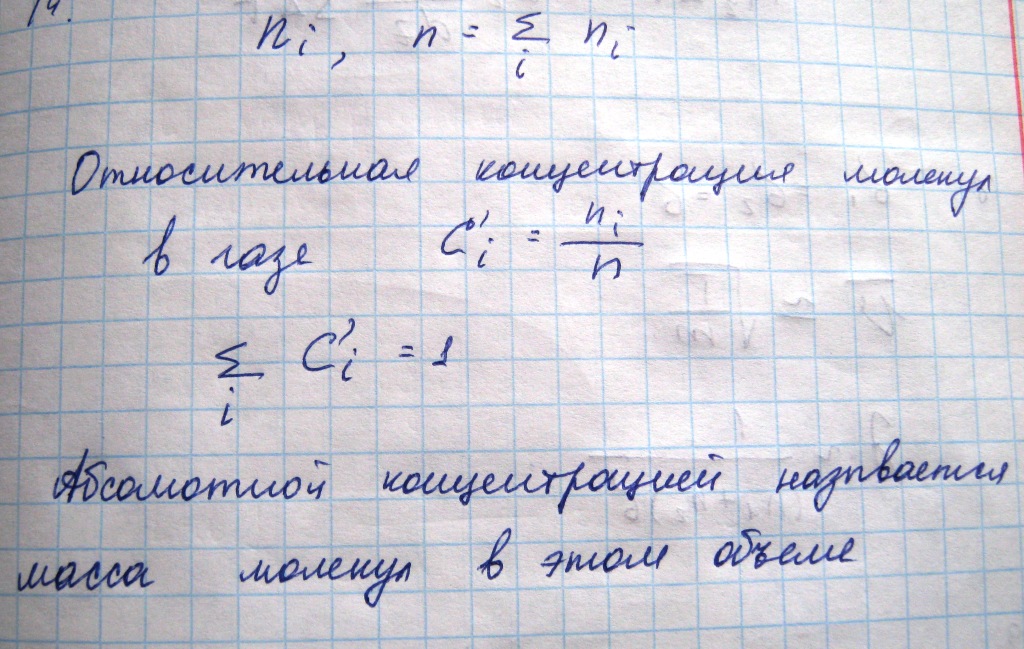 n_i, n = Σ_i n_i
Относительная концентрация молекул
в газе C'_i = n_i / n
Σ_i C'_i = 1
Абсолютной концентрацией называется
масса молекул в этом объеме